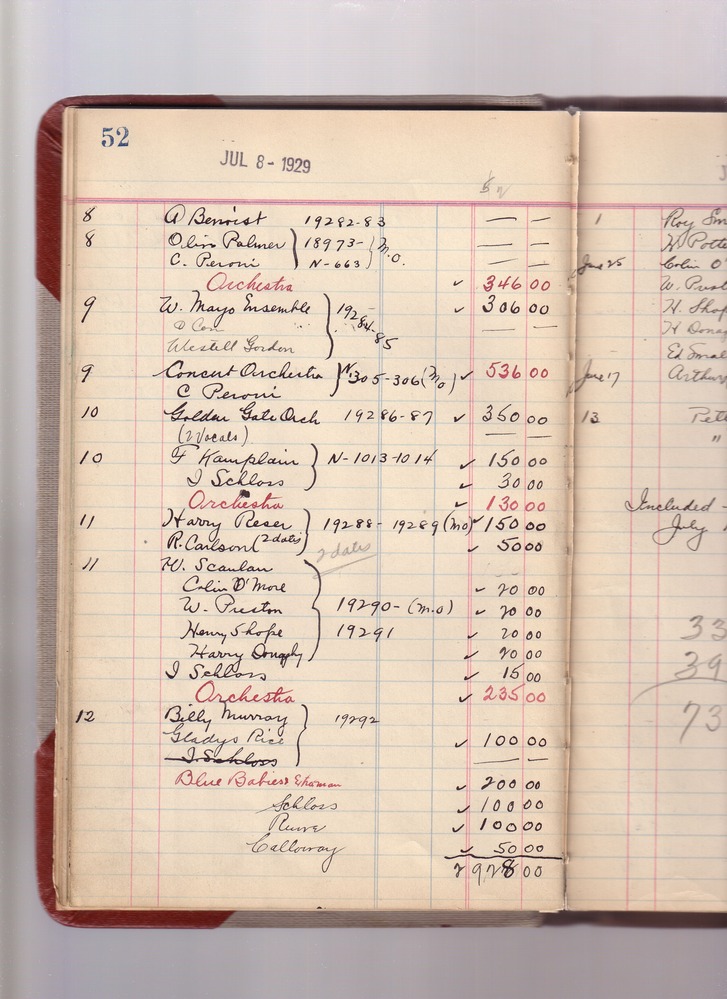 52
JUL 8 - 1929
8 A Benoist 19282-83 — —
8 Olin Palmer 18973- M.O. — —
C. Peroni N-663 — —
Orchestra ✓ 346 00
9 W. Mayo Ensemble 19284-85 ✓ 306 00
D Con — —
Westell Gordon
9 Concert Orchestra N305-306 (Mo) ✓ 536 00
C Peroni
10 Golden Gate Orch 19286-87 ✓ 350 00
(2 Vocals) — —
10 F Kamplain N-1013-1014 ✓ 150 00
I Schloss ✓ 30 00
Orchestra ✓ 130 00
11 Harry Reser 19288-19289 (Mo) ✓ 150 00
R. Carlson (2 dates) ✓ 50 00
2 dates
11 W. Scanlan
Colin O'More ✓ 20 00
W. Preston 19290- (M.O) ✓ 20 00
Henry Shope 19291 ✓ 20 00
Harry Donaghy ✓ 20 00
I Schloss ✓ 15 00
Orchestra ✓ 235 00
12 Billy Murray 19292
Gladys Rice ✓ 100 00
I. Schloss — —
Blue Babies ✓ 200 00
Schloss ✓ 100 00
✓ 100 00
Calloway ✓ 50 00
2928 00
1 Roy Sm
W. Potte
June 25 Colin O'
W. Prest
H. Shop
H Donag
Ed Smal
June 17 Arthur
13 Pet
"
Included -
July 1
33
39
73